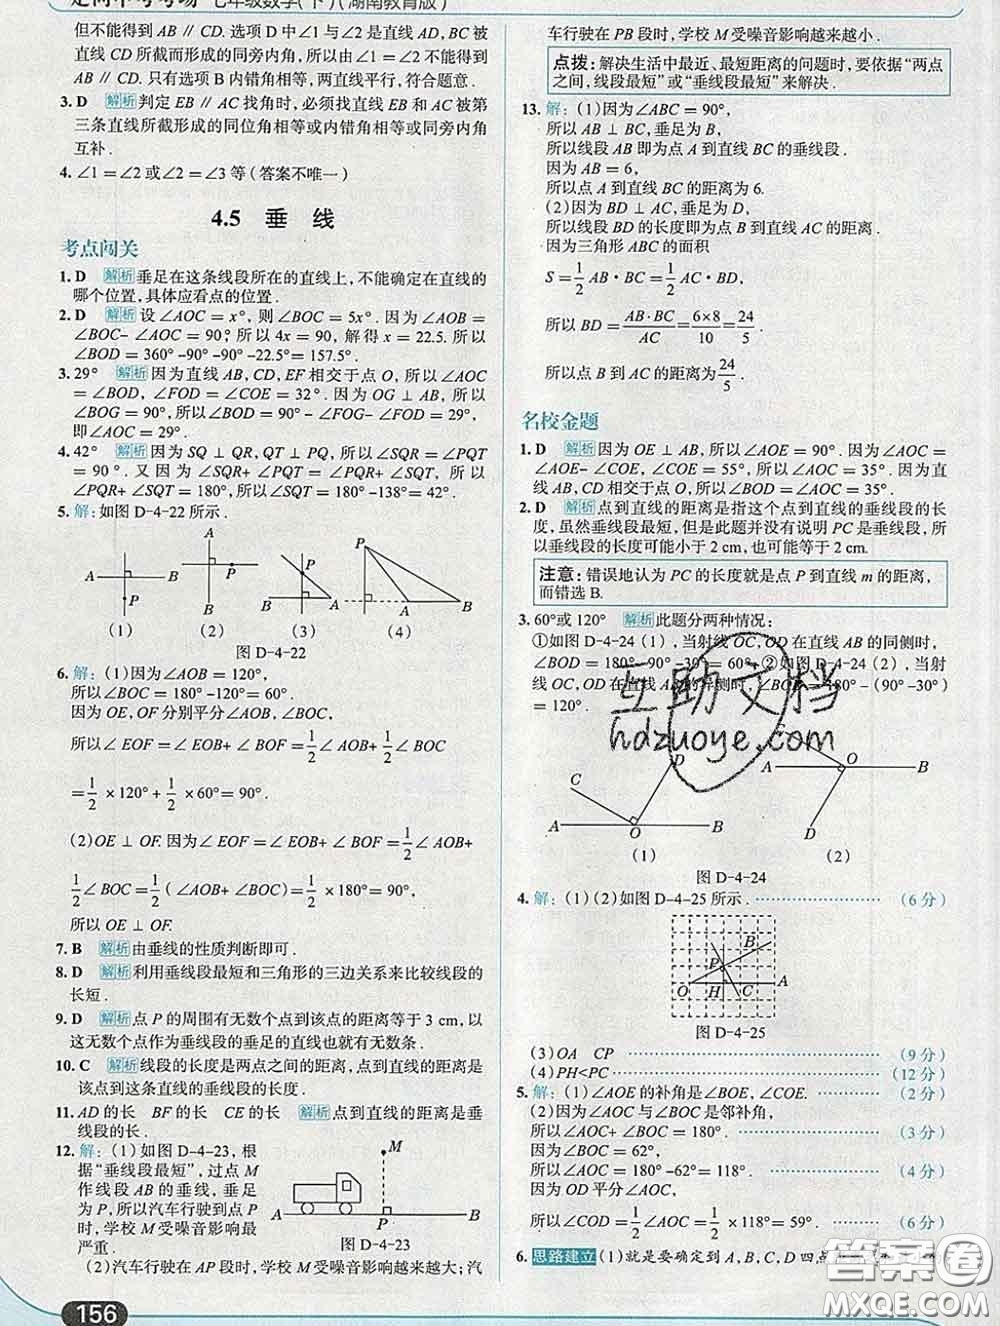 七年级数学(下)(湖南教育版)
但不能得到AB∥CD. 选项D中∠1与∠2是直线AD,BC被
直线CD所截而形成的同旁内角,所以由∠1=∠2不能得到
AB∥CD. 只有选项B内错角相等,两直线平行,符合题意.
3. D 解析 判定EB∥AC找角时,必须找直线EB和AC被第
三条直线所截形成的同位角相等或内错角相等或同旁内角
互补.
4. ∠1=∠2或∠2=∠3等(答案不唯一)
4.5 垂线
考点闯关
1. D 解析 垂足在这条线段所在的直线上,不能确定在直线的
哪个位置,具体应看点的位置.
2. D 解析 设∠AOC=x°,则∠BOC=5x°. 因为∠AOB=
∠BOC-∠AOC=90°,所以4x=90,解得x=22.5. 所以
∠BOD=360°-90°-90°-22.5°=157.5°.
3. 29° 解析 因为直线AB,CD,EF相交于点O,所以∠AOC
=∠BOD,∠FOD=∠COE=32°. 因为OG⊥AB,所以
∠BOG=90°,所以∠BOD=90°-∠FOG-∠FOD=29°,
即∠AOC=29°.
4. 42° 解析 因为SQ⊥QR,QT⊥PQ,所以∠SQR=∠PQT
=90°. 又因为∠SQR+∠PQT=∠PQR+∠SQT,所以
∠PQR+∠SQT=180°,所以∠SQT=180°-138°=42°.
5. 解:如图D-4-22所示.
A B P
A B P
P A
P A B
(1) (2) (3) (4)
图D-4-22
6. 解:(1)因为∠AOB=120°,
所以∠BOC=180°-120°=60°.
因为OE,OF分别平分∠AOB,∠BOC,
所以∠EOF=∠EOB+∠BOF=1/2∠AOB+1/2∠BOC
=1/2×120°+1/2×60°=90°.
(2)OE⊥OF. 因为∠EOF=∠EOB+∠BOF=1/2∠AOB+
1/2∠BOC=1/2(∠AOB+∠BOC)=1/2×180°=90°,
所以OE⊥OF.
7. B 解析 由垂线的性质判断即可.
8. D 解析 利用垂线段最短和三角形的三边关系来比较线段的
长短.
9. D 解析 点P的周围有无数个点到该点的距离等于3 cm,以
这无数个点作为垂线段的垂足的直线也就有无数条.
10. C 解析 线段的长度是两点之间的距离,点到直线的距离是
该点到这条直线的垂线段的长度.
11. AD的长 BF的长 CE的长 解析 点到直线的距离是垂
线段的长.
12. 解:(1)如图D-4-23,根
据“垂线段最短”,过点M
作线段AB的垂线,垂足
为P,所以汽车行驶到点P
时,学校M受噪音影响最
严重.
M
A P B
图D-4-23
(2)汽车行驶在AP段时,学校M受噪音影响越来越大;汽
156
车行驶在PB段时,学校M受噪音影响越来越小.
点拨:解决生活中最近、最短距离的问题时,要依据“两点
之间,线段最短”或“垂线段最短”来解决.
13. 解:(1)因为∠ABC=90°,
所以AB⊥BC,垂足为B,
所以线段AB即为点A到直线BC的垂线段.
因为AB=6,
所以点A到直线BC的距离为6.
(2)因为BD⊥AC,垂足为D,
所以线段BD的长度即为点B到直线AC的距离.
因为三角形ABC的面积
S=1/2AB·BC=1/2AC·BD,
所以BD=AB·BC/AC=6×8/10=24/5.
所以点B到AC的距离为24/5.
名校金题
1. D 解析 因为OE⊥AB,所以∠AOE=90°. 因为∠AOC=
∠AOE-∠COE,∠COE=55°,所以∠AOC=35°. 因为直
线AB,CD相交于点O,所以∠BOD=∠AOC=35°.
2. D 解析 点到直线的距离是指这个点到直线的垂线段的长
度,虽然垂线段最短,但是此题并没有说明PC是垂线段,所
以垂线段的长度可能小于2 cm,也可能等于2 cm.
注意:错误地认为PC的长度就是点P到直线m的距离,
而错选B.
3. 60°或120° 解析 此题分两种情况:
①如图D-4-24(1),当射线OC,OD在直线AB的同侧时,
∠BOD=180°-90°-30°=60°;②如图D-4-24(2),当射
线OC,OD在直线AB的异侧时,∠BOD=180°-(90°-30°)
=120°.
互助文档
hdzuoye.com
C D A O B
A O B D
(1) (2)
图D-4-24
4. 解:(1)(2)如图D-4-25所示. (6分)
B P O H C A
图D-4-25
(3)OA CP (9分)
(4)PH<PC (12分)
5. 解:(1)∠AOE的补角是∠BOE,∠COE. (2分)
(2)因为∠AOC与∠BOC是邻补角,
所以∠AOC+∠BOC=180°. (3分)
因为∠BOC=62°,
所以∠AOC=180°-62°=118°. (4分)
因为OD平分∠AOC,
所以∠COD=1/2∠AOC=1/2×118°=59°. (6分)
6. 思路建立 (1)就是要确定到A,B,C,D四点
答案圈
MXQE.COM